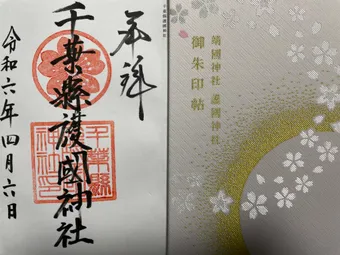 奉拝
千葉縣護國神社
令和六年四月六日
靖國神社 護國神社
御朱印帖